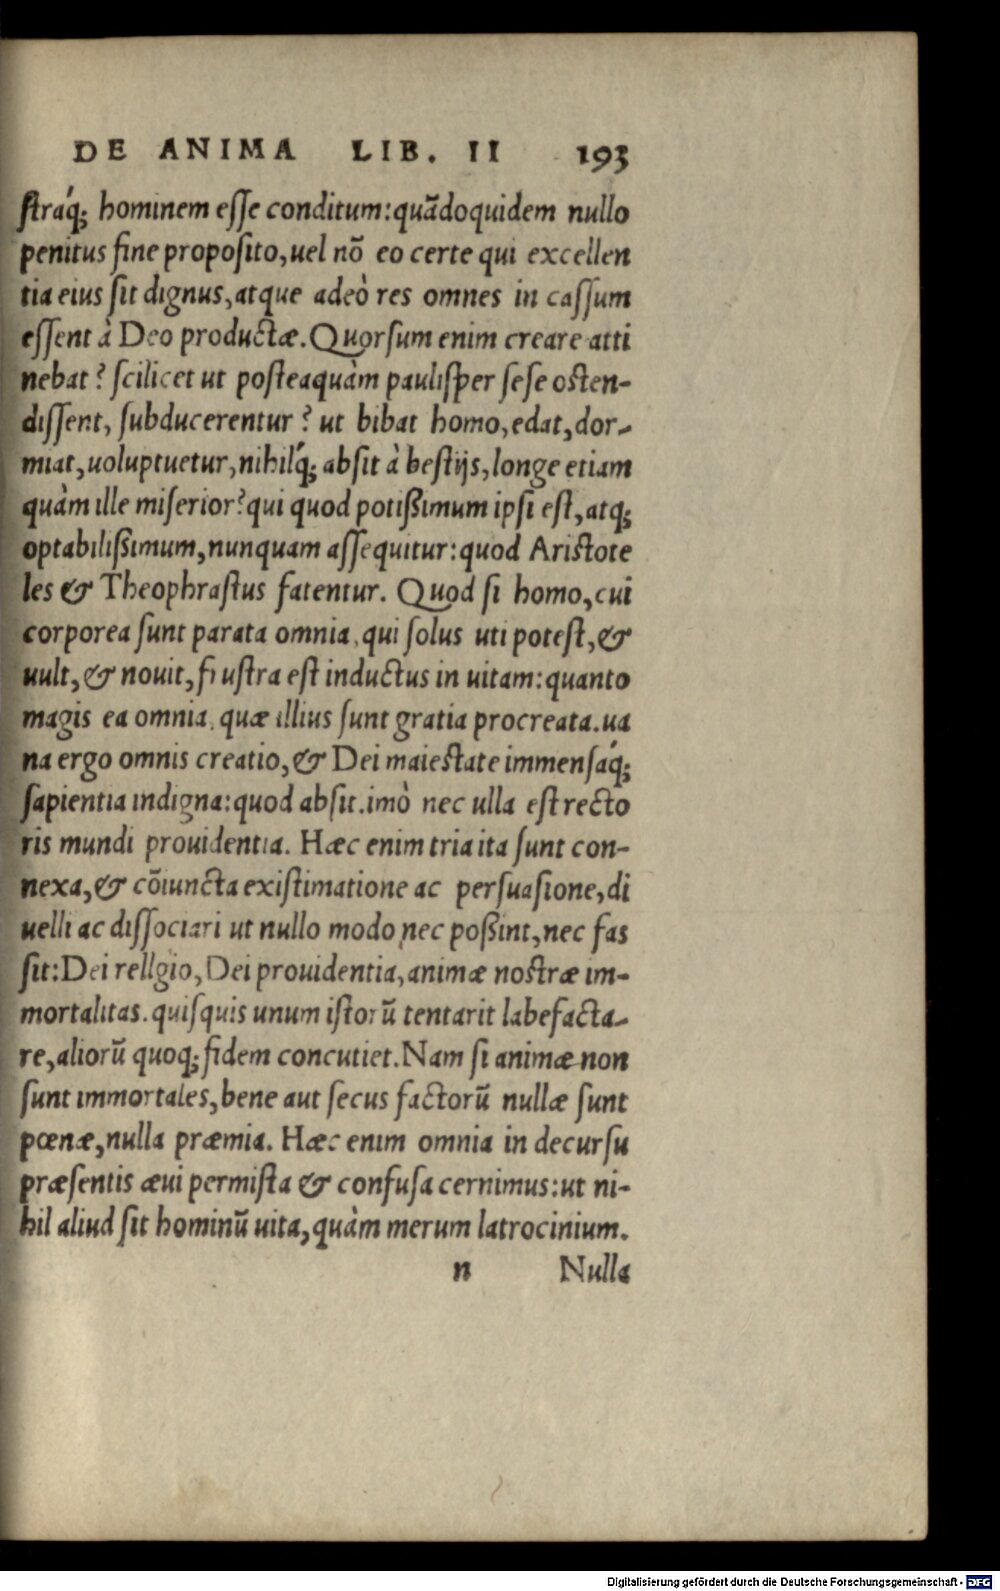 DE ANIMA LIB. II 193
ſtráq; hominem eſſe conditum: quãdoquidem nullo
penitus fine propoſito, uel nõ eo certe qui excellen
tia eius ſit dignus, atque adeò res omnes in caſſum
eſſent à Deo productæ. Quorſum enim creare atti
nebat? ſcilicet ut poſteaquàm pauliſper ſeſe oſten-
diſſent, ſubducerentur? ut bibat homo, edat, dor-
miat, uoluptuetur, nihilq́; abſit à beſtijs, longe etiam
quàm ille miſerior? qui quod potißimum ipſi eſt, atq;
optabilißimum, nunquam aſſequitur: quod Ariſtote
les & Theophraſtus fatentur. Quod ſi homo, cui
corporea ſunt parata omnia, qui ſolus uti poteſt, &
uult, & nouit, fruſtra eſt inductus in uitam: quanto
magis ea omnia, quæ illius ſunt gratia procreata. ua
na ergo omnis creatio, & Dei maieſtate immenſáq;
ſapientia indigna: quod abſit. imò nec ulla eſt recto
ris mundi prouidentia. Hæc enim tria ita ſunt con-
nexa, & cõiuncta exiſtimatione ac perſuaſione, di
uelli ac diſſociari ut nullo modo nec poßint, nec fas
ſit: Dei rellgio, Dei prouidentia, animæ noſtræ im-
mortalitas. quiſquis unum iſtorũ tentarit labefacta-
re, aliorũ quoq; fidem concutiet. Nam ſi animæ non
ſunt immortales, bene aut ſecus factorũ nullæ ſunt
pœnæ, nulla præmia. Hæc enim omnia in decurſu
præſentis æui permiſta & confuſa cernimus: ut ni-
hil aliud ſit hominũ uita, quàm merum latrocinium.
n Nulla
Digitalisierung gefördert durch die Deutsche Forschungsgemeinschaft - DFG